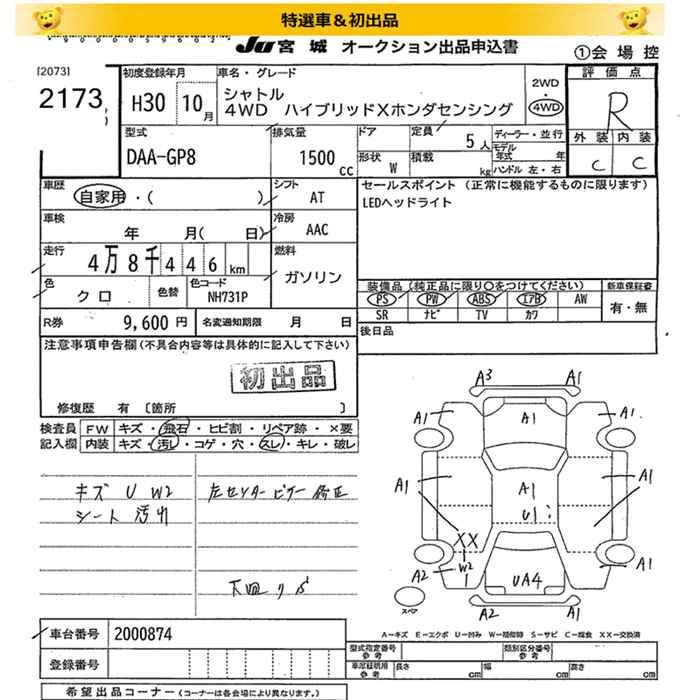 特選車＆初出品
JU 宮城 オークション出品申込書
①会場控
[2073]
2173
初度登録年月
H30 10月
車名・グレード
シャトル
4WD ハイブリッドXホンダセンシング
2WD
・
4WD
評価点
R
外装 内装
C C
型式
DAA-GP8
排気量
1500 cc
ドア
定員
5人
形状
W
積載
kg
ディーラー・並行
モデル年式 年
ハンドル 左・右
車歴
自家用・( )
シフト
AT
セールスポイント (正常に機能するものに限ります)
LEDヘッドライト
車検
年 月( 日)
冷房
AAC
走行
4万8千446km
燃料
ガソリン
色
クロ
色替
色コード
NH731P
装備品 (純正品に限り○をつけてください)
新車保証書
PS PW ABS エアB AW
SR ナビ TV カワ
有・無
R券
9,600円
名変通知期限 月 日
後日品
注意事項申告欄(不具合内容等は具体的に記入して下さい)
初出品
修復歴 有 〔箇所 〕
検査員記入欄
FW キズ・飛石・ヒビ割・リペア跡・×要
内装 キズ・汚レ・コゲ・穴・スレ・キレ・破レ
キズ U W2
シート汚れ
左センターピラー修正
下回りサビ
A3 A1
A1 A1 A1
A1 A1 A1
U1
XX
W2
1
A2 UA4 A1
A2 A1
スペア
A-キズ E-エクボ U-凹み W-補修跡 S-サビ C-腐食 XX-交換済
車台番号
2000874
登録番号
型式指定番号 参考
類別区分番号 参考
車庫証明用 参考
長さ cm
幅 cm
高さ cm
希望出品コーナー (コーナーは各会場により異なります。)